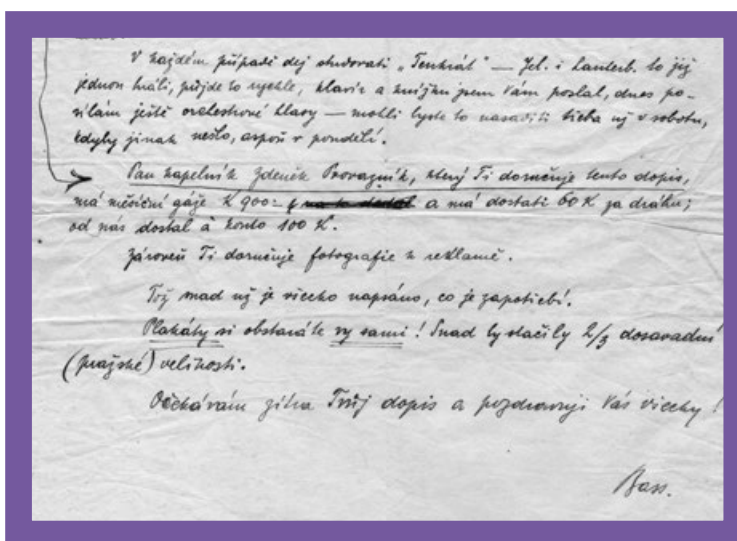 V každém případě dej studovati „Tenkrát" — Jel. i Lauterb. to již
jednou hráli, půjde to rychle, klavír a knížku jsem Vám poslal, dnes po-
sílám ještě orchestrové hlasy — mohli byste to nasaditi třeba už v sobotu,
kdyby jinak nešlo, aspoň v pondělí.
Pan kapelník Zdeněk Provazník, který Ti doručuje tento dopis,
má měsíční gáže K 900.- a má dostati 60 K za dráhu;
od nás dostal à konto 100 K.
Zároveň Ti doručuje fotografie k reklamě.
Tož snad už je všecko napsáno, co je zapotřebí.
Plakáty si obstaráte vy sami! Snad by stačily 2/3 dosavadní
(pražské) velikosti.
Očekávám zítra Tvůj dopis a pozdravuji Vás všecky!
Bass.